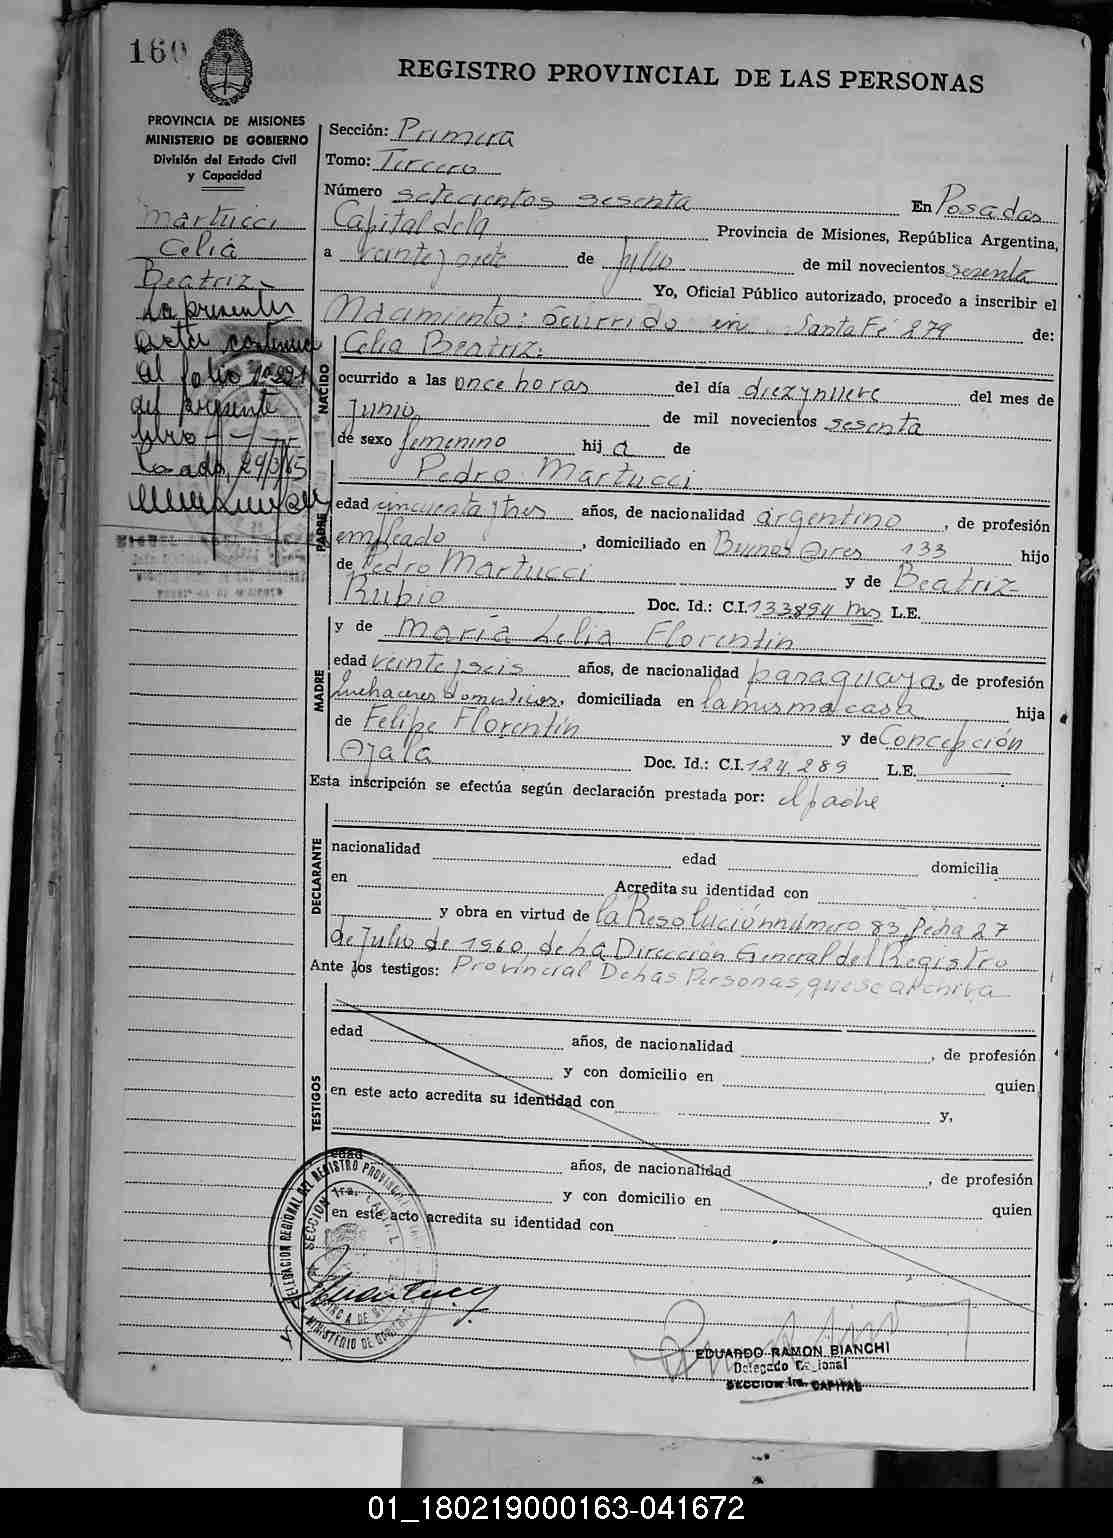 160
REGISTRO PROVINCIAL DE LAS PERSONAS
PROVINCIA DE MISIONES
MINISTERIO DE GOBIERNO
División del Estado Civil
y Capacidad
Martucci
Celia
Beatriz
La presente
acta continua
al folio
del presente
libro
29/3/65
Sección: Primera
Tomo: Tercero
Número setecientos sesenta En Posadas
Capital de la Provincia de Misiones, República Argentina,
a veinte y siete de Julio de mil novecientos sesenta
Yo, Oficial Público autorizado, procedo a inscribir el
Nacimiento: ocurrido en Santa Fé 279 de:
NACIDO
Celia Beatriz:
ocurrido a las once horas del día diez y nueve del mes de
Junio de mil novecientos sesenta
de sexo femenino hij a de
Pedro Martucci
PADRE
edad cincuenta y tres años, de nacionalidad argentino, de profesión
empleado, domiciliado en Buenos Aires 133 hijo
de Pedro Martucci y de Beatriz
Rubio Doc. Id.: C.I. 133894 Ms L.E.
MADRE
y de María Lelia Florentín
edad veinte y seis años, de nacionalidad paraguaya, de profesión
quehaceres domesticos, domiciliada en la misma casa hija
de Felipe Florentín y de Concepción
Ayala Doc. Id.: C.I. 124.289 L.E.
Esta inscripción se efectúa según declaración prestada por: el padre
DECLARANTE
nacionalidad edad domicilia
en Acredita su identidad con
y obra en virtud de la Resolución número 83 fecha 27
de Julio de 1960 de La Dirección General del Registro
Ante los testigos: Provincial De Las Personas, que se archiva
TESTIGOS
edad años, de nacionalidad , de profesión
y con domicilio en quien
en este acto acredita su identidad con y,
edad años, de nacionalidad , de profesión
y con domicilio en quien
en este acto acredita su identidad con
DELEGACION REGIONAL DEL REGISTRO PROVINCIAL
SECCION 1ra. CAPITAL
PROVINCIA DE MISIONES
MINISTERIO DE GOBIERNO
EDUARDO RAMON BIANCHI
Delegado
SECCION 1ra. CAPITAL
01_180219000163-041672